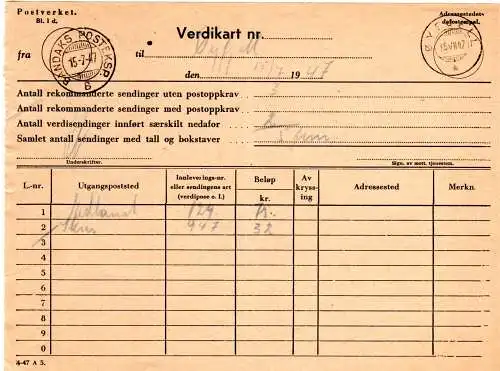 Postverket.
Bl. 1 d.
Verdikart nr.
Adressestedets
datostempel.
SANDAKS POSTEKSP.
15-7-47
B
15 VII 47
fra til
den 15/7 1947
Antall rekommanderte sendinger uten postoppkrav 3
Antall rekommanderte sendinger med postoppkrav
Antall verdisendinger innført særskilt nedafor 2
Samlet antall sendinger med tall og bokstaver 5 fem
Underskrifter. Sign. av mott. tjenestem.
L.-nr. Utgangspoststed Innleverings-nr. eller sendingens art (verdipose o. l.) Beløp kr. Av kryssing Adressested Merkn.
1 129
2 947 32
3
4
5
6
7
8
9
0
4-47 A 5.